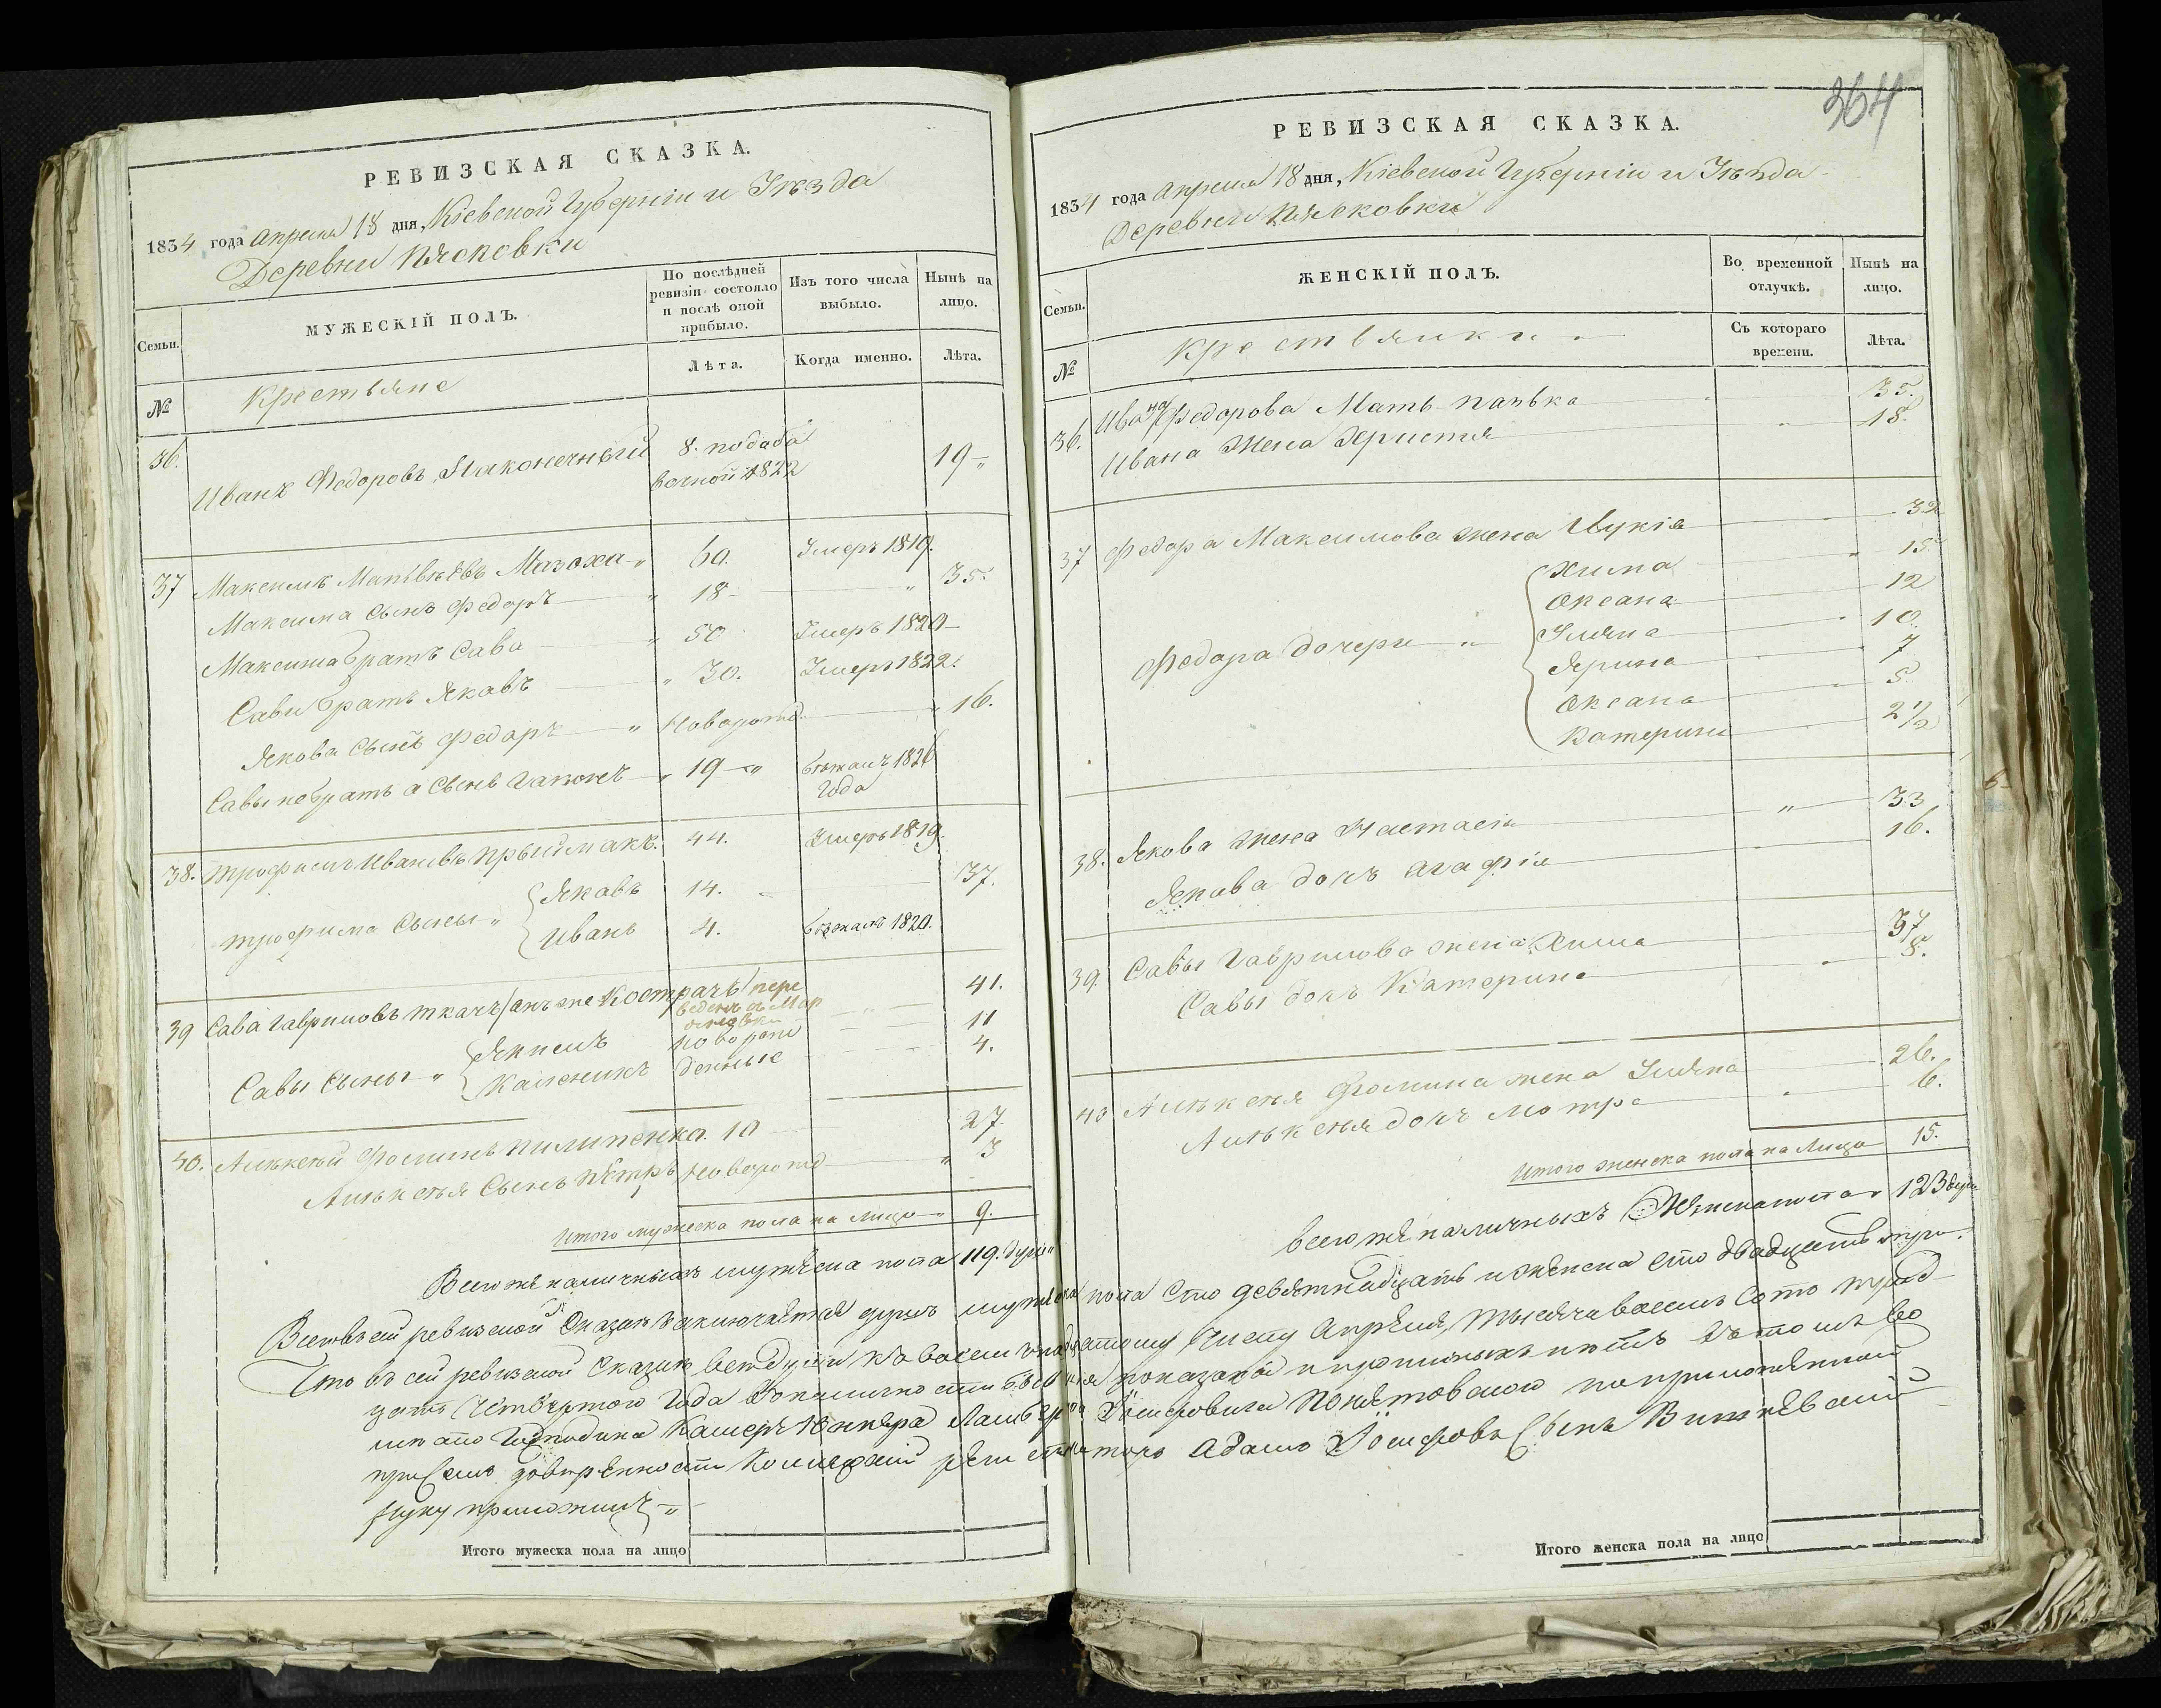 РЕВИЗСКАЯ СКАЗКА.
1834 года Апреля 18 дня, Кіевской Губерніи и Уезда
Деревни Пясковки
Семьи.
МУЖЕСКІЙ ПОЛЪ.
По послѣдней ревизіи состояло и послѣ оной прибыло.
Изъ того числа выбыло.
Нынѣ на лицо.
Лѣта.
Когда именно.
Лѣта.
№
Крестьяне
36.
Иванъ Федоровъ Наконечный
8. по
1822
19
37 Максимъ Матвѣевъ Мазоха 60. Умеръ 1819.
Максима Сынъ Федоръ 18 35.
Максима братъ Сава 50 Умеръ 1820
Савы братъ Яковъ 30. Умеръ 1822.
Якова Сынъ Федоръ Новорожд. 16.
Савы не братъ а Сынъ Гапонъ 19 бежалъ 1826
Года
38. Трофимъ Ивановъ Прыймакъ. 44. Умеръ 1819.
Трофима Сыны Яковъ 14. 37.
Иванъ 4. бежалъ 1820.
39 Сава Гавриловъ Ткачъ/онъ же Кострачъ/ пере 41.
Савы Сыны Якимъ новорож 11
Каленикъ денные 4.
40. Алексѣй Фоминъ Пилипенко. 10 27.
Алексѣя Сынъ Петръ Новорожд 3
Итого мужеска пола на лицо 9.
Всего же наличныхъ мужеска пола 119. душъ
РЕВИЗСКАЯ СКАЗКА.
364
1834 года Апреля 18 дня, Кіевской Губерніи и Уезда
Деревни Пясковки
Семьи.
ЖЕНСКІЙ ПОЛЪ.
Во временной отлучкѣ.
Нынѣ на лицо.
Съ котораго времени.
Лѣта.
№
Крестьянки
36. Ивана Федорова Мать Палька 35.
Ивана Жена Христія 18
37 Федора Максимова жена Цукія 32
Федора дочери Хима 15
Оксана 12
Уляна 10.
Ярина 7
Оксана 5
Катерина 2 1/2
38. Якова жена Настасія 33
Якова дочъ Агафія 16.
39. Савы Гаврилова жена Хима 37
Савы дочъ Катерина 8.
40 Алексѣя Фомина жена Уляна 26.
Алексѣя дочъ Мотра 6.
Итого женска пола на Лицо 15.
Всего же наличныхъ Женска пола 123 души
Всего въ сей ревизской Сказкѣ заключается душъ мужеска пола Сто девятнадцать и женска сто двадцать три.
Что въ сей ревизской Сказкѣ все души къ восемнадцатому числу Апреля, тысяча восемь сотъ трид
цать Четвертого Года по наличности показаны и прописныхъ нетъ въ томъ во
место Господина Камеръ Юнкера Понятовского по приложенной
при семъ доверенности Коллежскій регистраторъ Адамъ Іосифовъ Сынъ Вишневскій
руку приложилъ
Итого мужеска пола на лицо
Итого женска пола на лицо